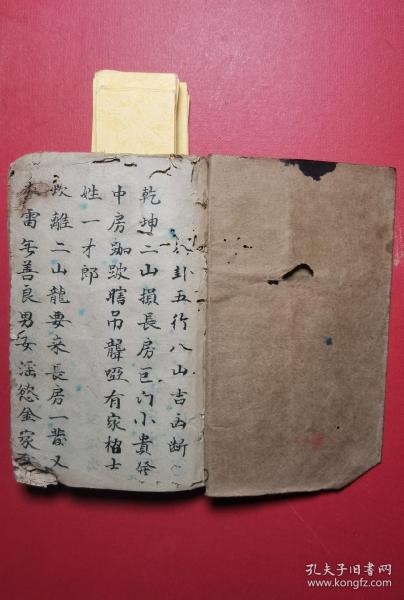 八卦五行八山吉凶断
乾坤二山損長房巨门小貴發
中房跏跛瞎吊聾啞有家招士
姓一才郎
坎離二山龍要来長房一發又
雷無善良男女滛慾金家
孔夫子旧书网
www.kongfz.com